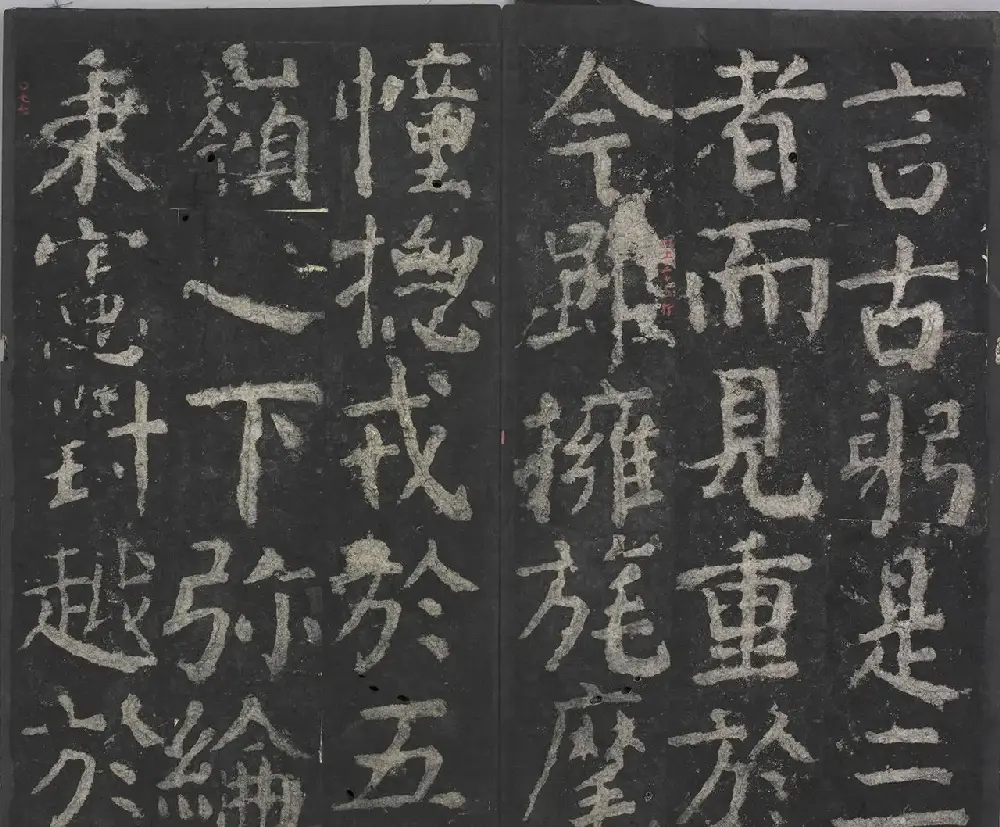 言古躬是三
者而見重於
今雖擁旄麾
幢揔戎於五
嶺之下弥綸
秉憲對越於